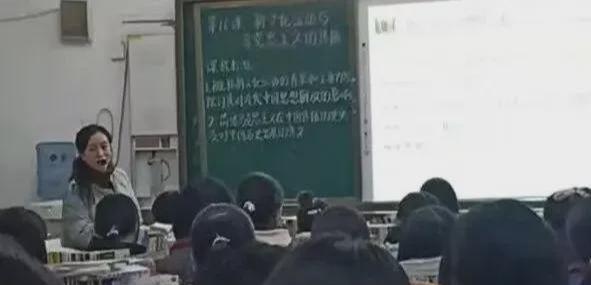 第16课 新文化运动与
马克思主义的传播
课程标准
1.概述新文化运动的 和主要内容
探讨其对近代中国思想解放的影响
2.简述马克思主义在中国传播的史实
对中国历史发展的意义